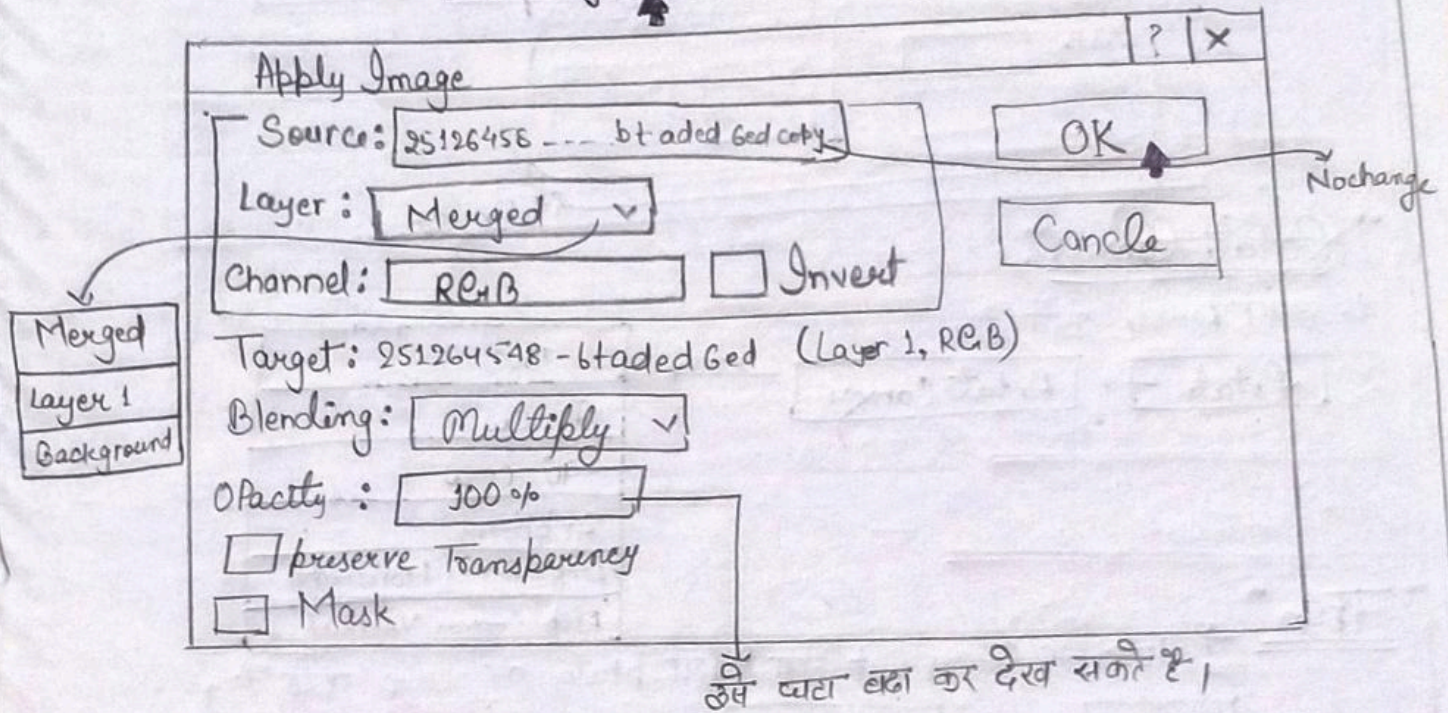 ? ×
Apply Image
Source: 25126456 ---- bt aded Ged copy
OK
Nochange
Layer: Merged
Cancle
Channel: RGB Invert
Merged
Layer 1
Background
Target: 251264548 - btaded Ged (Layer 1, RGB)
Blending: Multiply
Opacity: 100%
preserve Transparency
Mask
इसे घटा बढा कर देख सकते है।